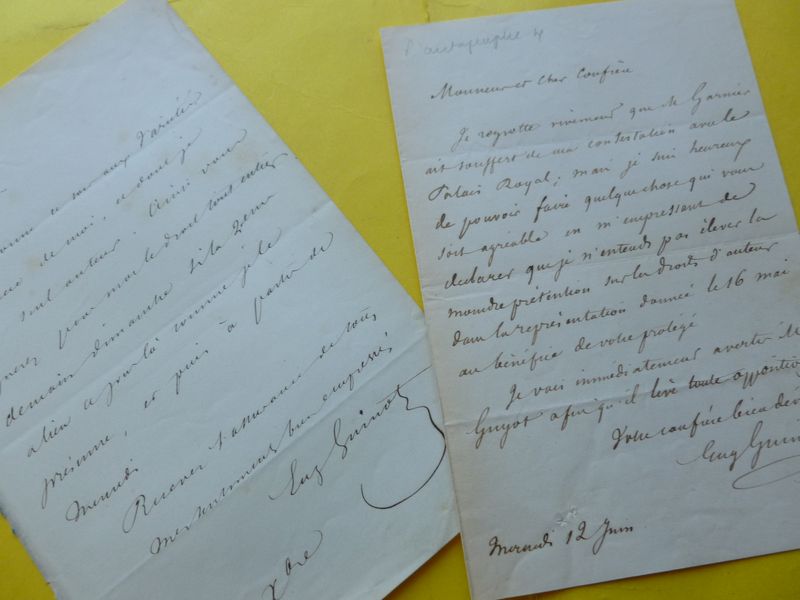 ce soir aux Variétés
de moi, et dont je
seul auteur. Ainsi vous
pour moi le droit tout entier.
demain dimanche si la 2eme
a lieu ce jour là comme je le
présume, et puis à partir de
Mercredi
Recevez l'assurance de tous
mes sentimens bien empressés
Eug Guinot
xbre
L'autographe 4
Monsieur et Cher Confrère
Je regrette vivement que Mr Garnier
ait souffert de ma contestation avec le
Palais Royal; mais je suis heureux
de pouvoir faire quelque chose qui vous
soit agréable en m'empressant de
déclarer que je n'entends pas élever la
moindre prétention sur les droits d'auteur
dans la représentation donnée le 16 mai
au bénéfice de votre protégé
Je vais immédiatement avertir M
Guyot afin qu'il lève toute opposition
Votre confrère bien dév
Eug Guin
Mercredi 12 Juin